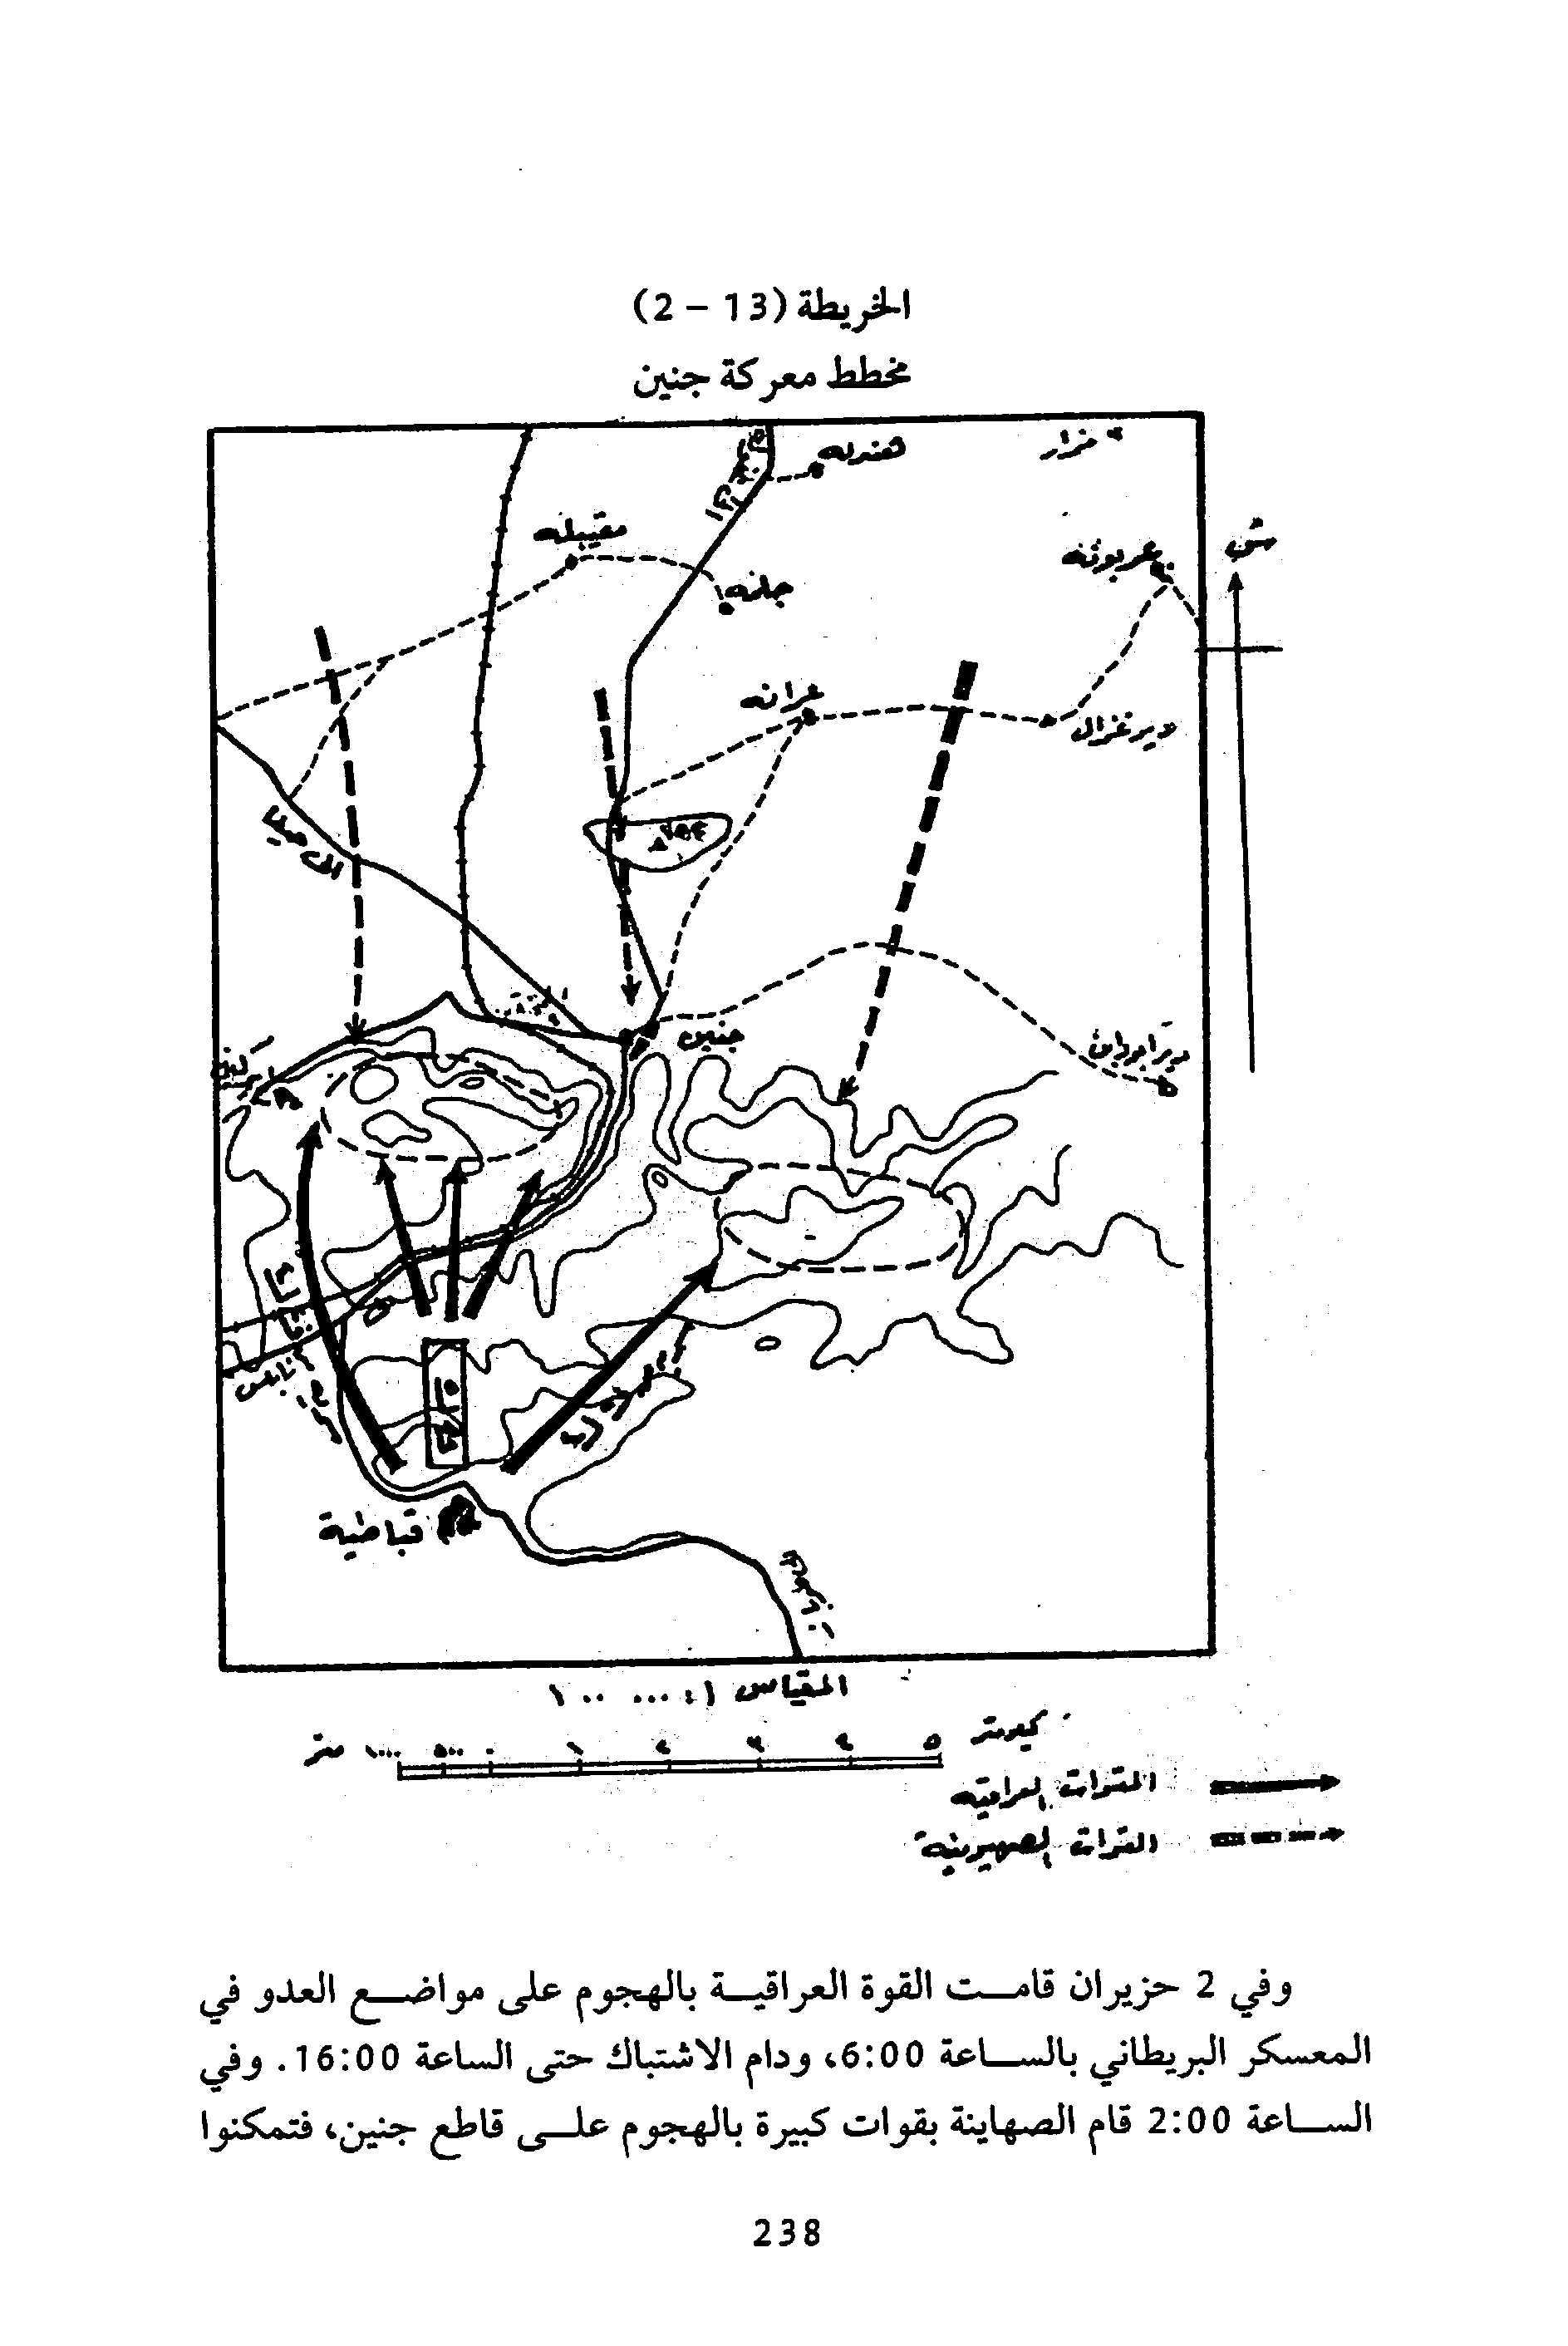 الخريطة (13 - 2)
مخطط معركة جنين
مزار
صندله
مقيبله
جلمه
عربونه
ش
عرانه
دير غزال
الى حيفا
جنين
دير ابو ضعيف
نابلس
قباطية
المقياس ١ : ١٠٠ ٠٠٠
كيلومتر
٥ ٤ ٣ ٢ ١ ٠ ٥٠٠ ١٠٠٠ متر
القوات العراقيه
القوات الصهيونية
وفي 2 حزيران قامـــت القوة العراقيـــة بالهجوم على مواضـــع العدو في
المعسكر البريطاني بالســـاعة 6:00، ودام الاشتباك حتى الساعة 16:00. وفي
الســـاعة 2:00 قام الصهاينة بقوات كبيرة بالهجوم علـــى قاطع جنين، فتمكنوا
238